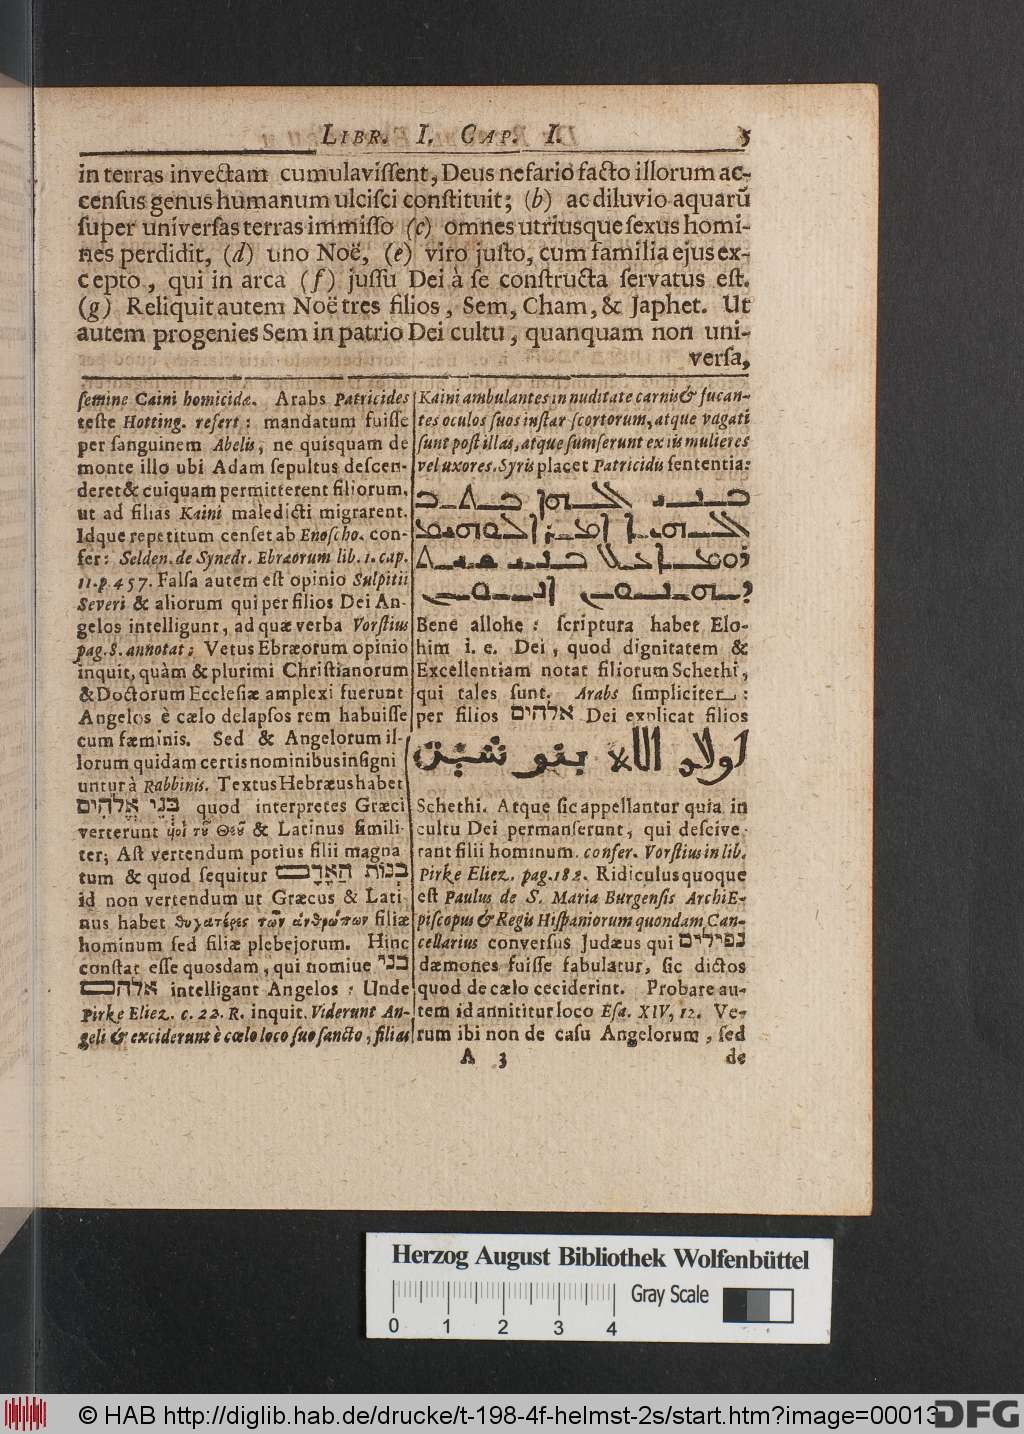 LIBR. I. CAP. I. 5
in terras invectam cumulaviſſent, Deus nefario facto illorum ac-
cenſus genus humanum ulciſci conſtituit; (b) ac diluvio aquarũ
ſuper univerſas terras immiſſo (c) omnes utriusque ſexus homi-
nes perdidit, (d) uno Noë, (e) viro juſto, cum familia ejus ex-
cepto, qui in arca (f) juſſu Dei à ſe conſtructa ſervatus eſt.
(g) Reliquit autem Noë tres filios, Sem, Cham, & Japhet. Ut
autem progenies Sem in patrio Dei cultu, quanquam non uni-
verſa,
ſemine Caini homicidæ. Arabs Patricides
teſte Hotting. refert: mandatum fuiſſe
per ſanguinem Abelis, ne quisquam de
monte illo ubi Adam ſepultus deſcen-
deret & cuiquam permitterent filiorum,
ut ad filias Kaini maledicti migrarent.
Idque repetitum cenſet ab Enoſcho. con-
fer: Selden. de Synedr. Ebræorum lib. 1. cap.
11. p. 457. Falſa autem eſt opinio Sulpitii
Severi & aliorum qui per filios Dei An-
gelos intelligunt, ad quæ verba Vorſtius
pag. 8. annotat: Vetus Ebræorum opinio
inquit, quàm & plurimi Chriſtianorum
& Doctorum Eccleſiæ amplexi fuerunt
Angelos è cælo delapſos rem habuiſſe
cum fæminis. Sed & Angelorum il-
lorum quidam certis nominibus inſigni
untur à Rabbinis. Textus Hebræus habet
בְּנֵי אֱלֹהִים quod interpretes Græci
verterunt ϥοὶ τȣ͂ Θεȣ͂ & Latinus ſimili-
ter; Aſt vertendum potius filii magna
tum & quod ſequitur בְּנוֹת הָאָדָם
id non vertendum ut Græcus & Lati
nus habet θυγατέρες τῶν ἀνθρώπων filiæ
hominum ſed filiæ plebejorum. Hinc
conſtat eſſe quosdam, qui nomiue בני
אלהים intelligant Angelos: Unde
Pirke Eliez. c. 22. R. inquit. Viderunt An-
geli & exciderunt è cœlo loco ſuo ſancto, filias
Kaini ambulantes in nuditate carnis & fucan-
tes oculos ſuos inſtar ſcortorum, atque vagati
ſunt poſt illas, atque ſumſerunt ex iis mulieres
vel uxores. Syris placet Patricidis ſententia:
Bene allohe: ſcriptura habet Elo-
him i. e. Dei, quod dignitatem &
Excellentiam notat filiorum Schethi,
qui tales ſunt. Arabs ſimpliciter:
per filios אלהים Dei explicat filios
اولاد الله بنو شيث
Schethi. Atque ſic appellantur quia in
cultu Dei permanſerunt, qui deſcive-
rant filii hominum. confer. Vorſtius in lib.
Pirke Eliez. pag. 182. Ridiculus quoque
eſt Paulus de S. Maria Burgenſis Archi E-
piſcopus & Regis Hiſpaniorum quondam Can-
cellarius converſus Judæus qui נפילים
dæmones fuiſſe fabulatur, ſic dictos
quod de cælo ceciderint. Probare au-
tem id annititur loco Eſa. XIV, 12. Ve-
rum ibi non de caſu Angelorum, ſed
A 3 de
Herzog August Bibliothek Wolfenbüttel
Gray Scale
0 1 2 3 4
© HAB http://diglib.hab.de/drucke/t-198-4f-helmst-2s/start.htm?image=00013
DFG